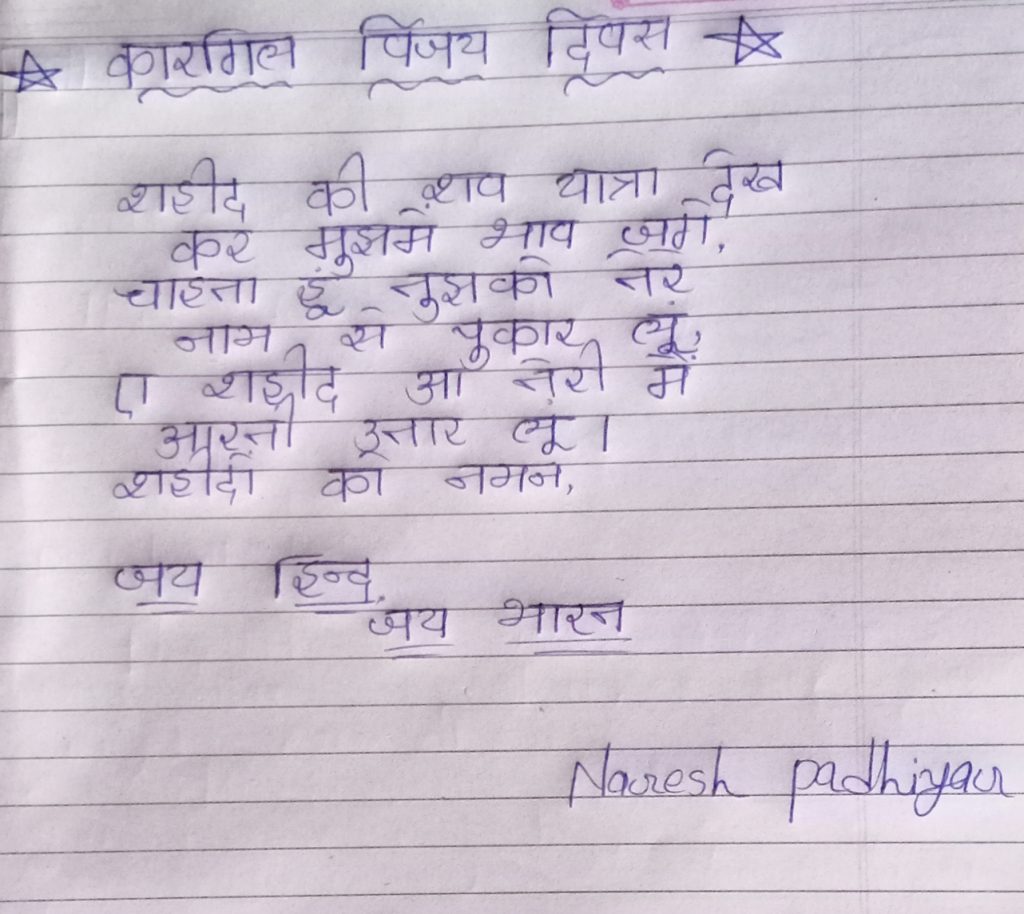 ☆ कारगिल विजय दिवस ☆
शहीद की शव यात्रा देख
कर मुझमें भाव जगे,
चाहता हूं तुझको तेरे
नाम से पुकार लूं,
ए शहीद आ तेरी मैं
आरती उतार लूं।
शहीदों को नमन,
जय हिन्द,
जय भारत
Naresh padhiyar